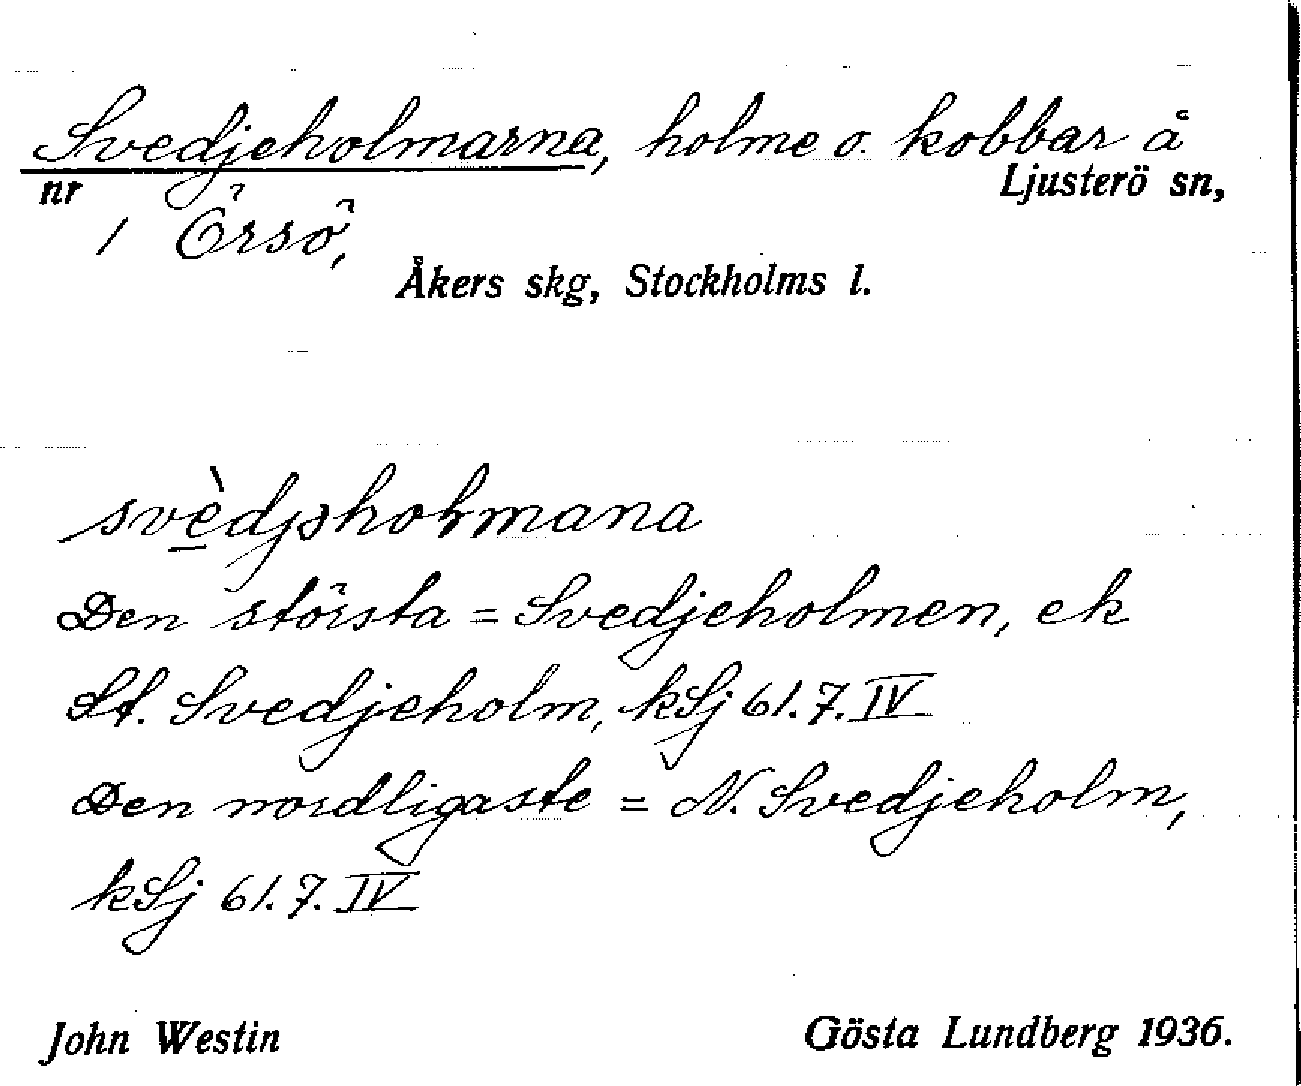 Svedjeholmarna, holme o. kobbar å
nr Ljusterö sn,
1 Örsö,
Åkers skg, Stockholms l.
svèdjəholmana
Den största = Svedjeholmen, ek
St. Svedjeholm, kSj 61.7.IV
Den nordligaste = N. Svedjeholm,
kSj 61.7.IV
John Westin Gösta Lundberg 1936.